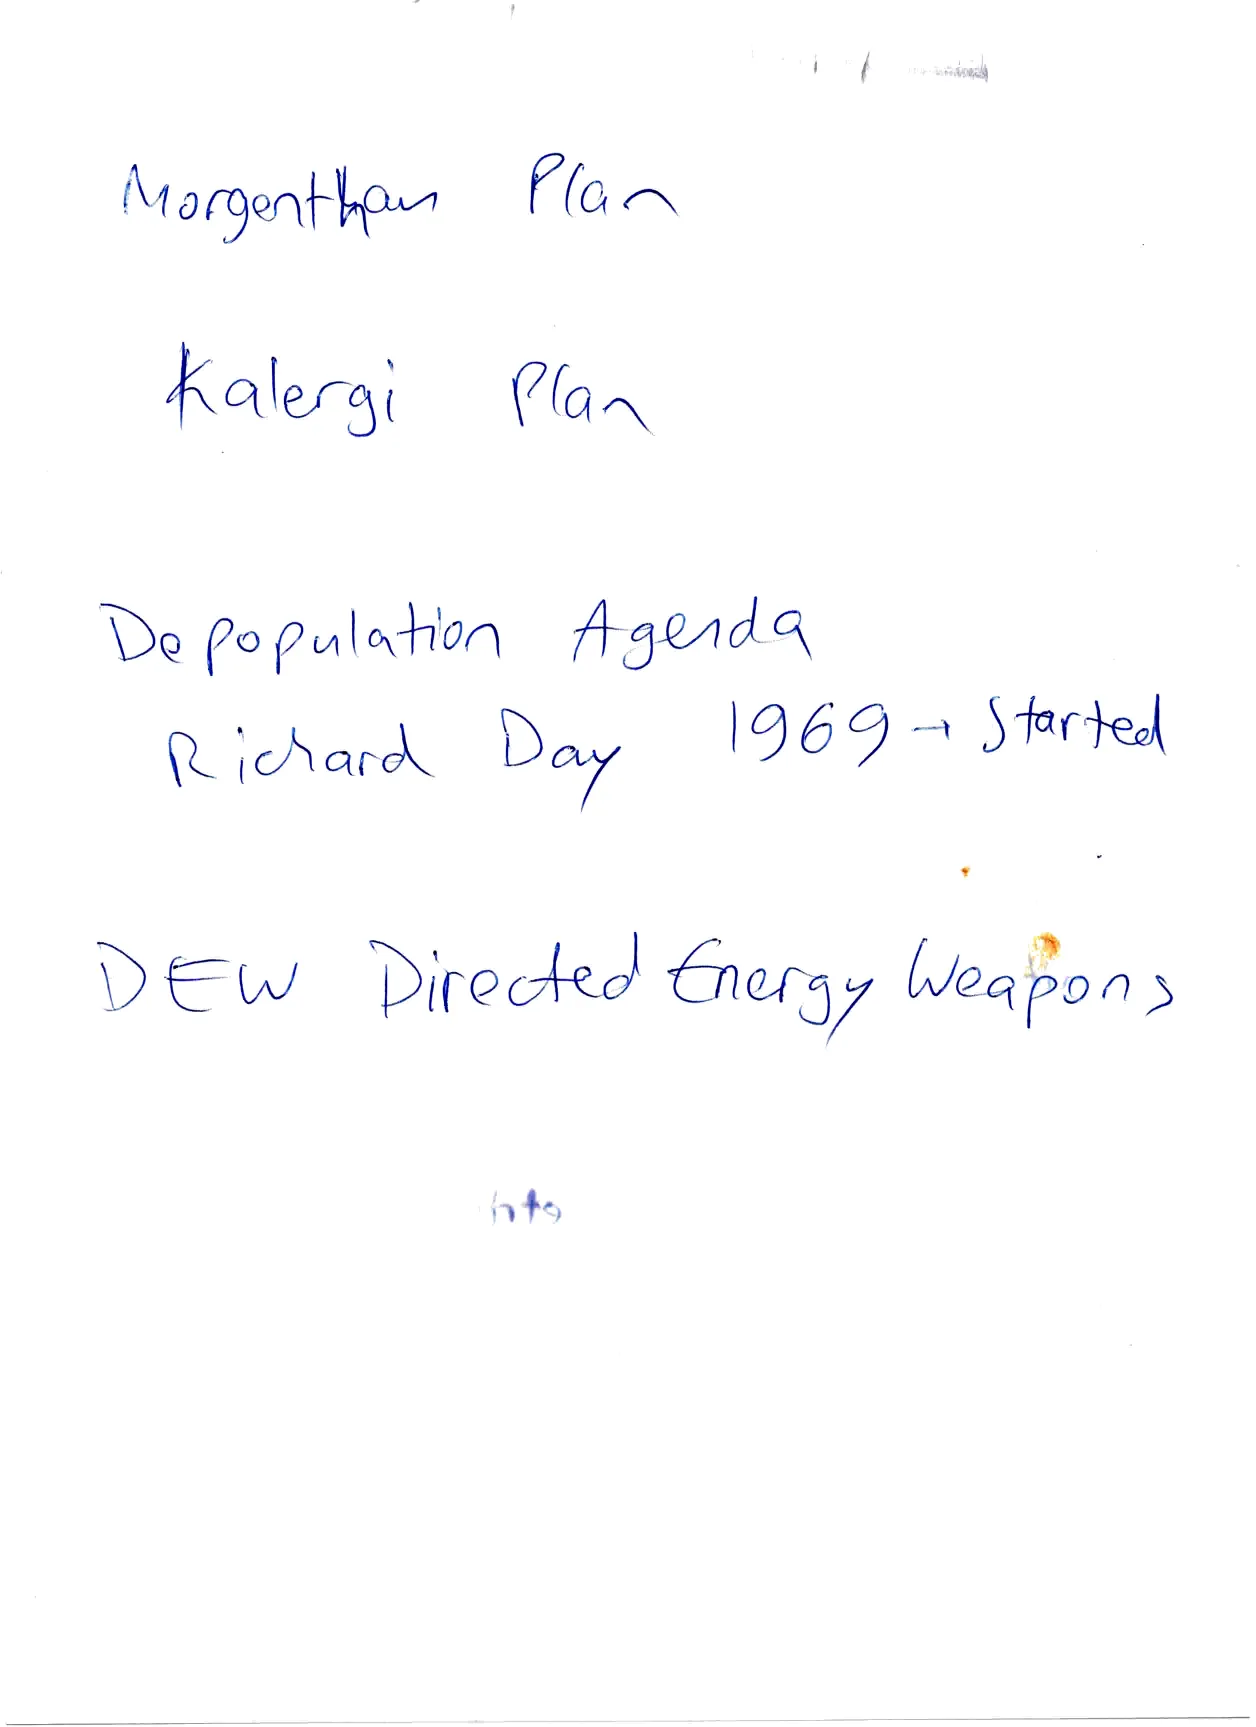 Morgenthau Plan
Kalergi Plan
Depopulation Agenda
Richard Day 1969 → Started
DEW Directed Energy Weapons